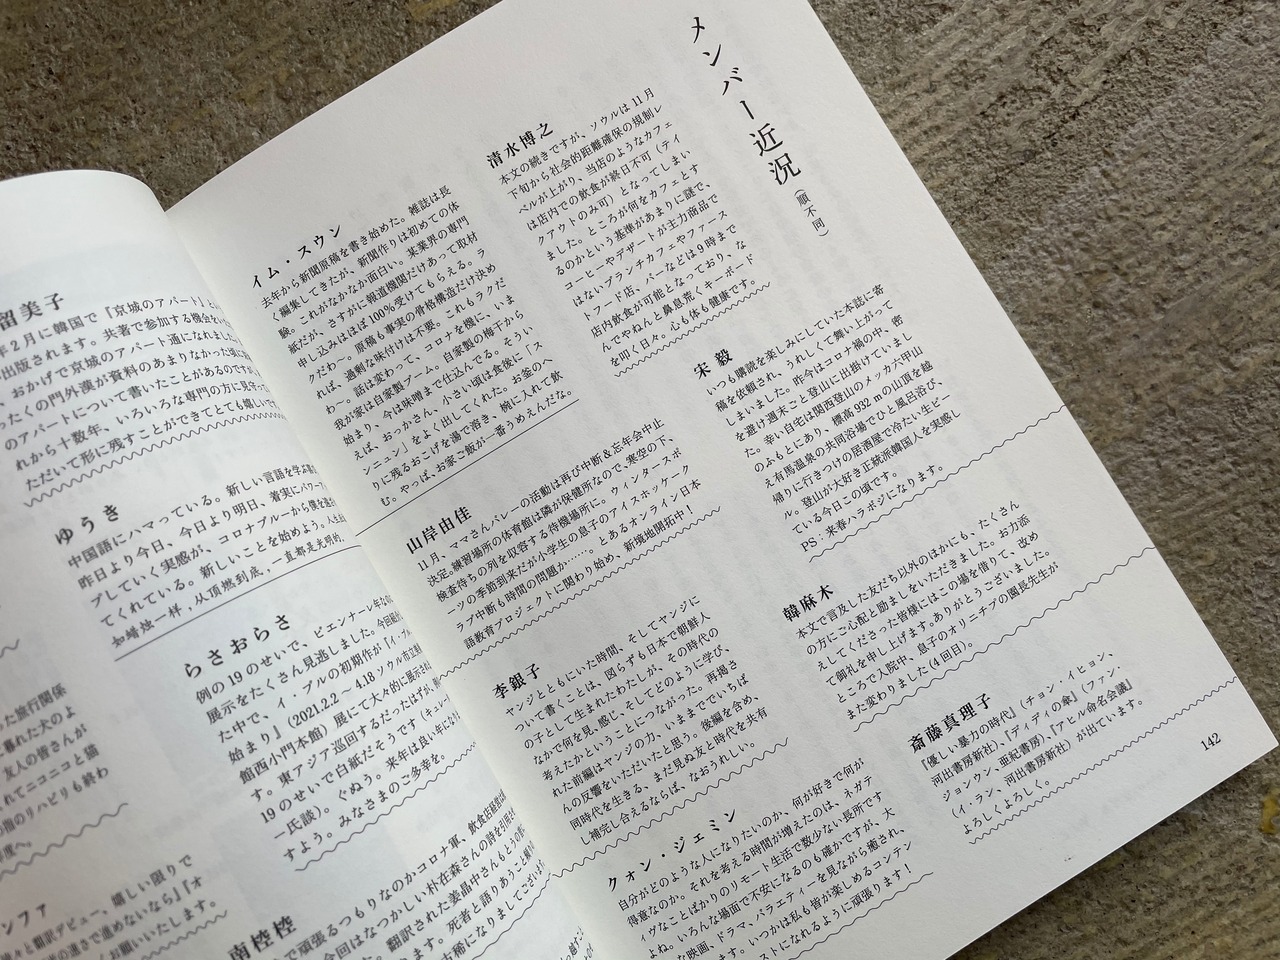 メンバー近況
（順不同）
清水博之
本文の続きですが、ソウルは11月
下旬から社会的距離確保の規制レ
ベルが上がり、当店のようなカフェ
は店内での飲食が終日不可（テイ
クアウトのみ可）となってしまい
ました。ところが何をカフェとす
るのかという基準があまりに謎で、
コーヒーやデザートが主力商品で
はないブランチカフェやファース
トフード店、バーなどは9時まで
店内飲食が可能となっており、な
んでやねんと鼻息荒くキーボード
を叩く日々。心も体も健康です。
宋毅
いつも購読を楽しみにしていた本誌に寄
稿を依頼され、うれしくて舞い上がって
しまいました。昨今はコロナ禍の中、密
を避け週末ごと登山に出掛けていまし
た。幸い自宅は関西登山のメッカ六甲山
のふもとにあり、標高932mの山頂を越
え有馬温泉の共同浴場でひと風呂浴び、
帰りに行きつけの居酒屋で冷たい生ビー
ル。登山が大好き正統派韓国人を実感し
ている今日この頃です。
PS：来春ハラボジになります。
韓麻木
本文で言及した友だち以外のほかにも、たくさん
の方にご心配と励ましをいただきました。お力添
えしてくださった皆様にはこの場を借りて、改め
て御礼を申し上げます。ありがとうございました。
ところで入院中、息子のオリニチプの園長先生が
また変わりました（4回目）。
斎藤真理子
『優しい暴力の時代』（チョン・イヒョン、
河出書房新社）、『ディディの傘』（ファン・
ジョンウン・亜紀書房）、『アヒル命名会議』
（イ・ラン、河出書房新社）が出ています。
よろしくよろしく。
イム・スウン
去年から新聞原稿を書き始めた。雑誌は長
く編集してきたが、新聞作りは初めての体
験。これがなかなか面白い。某業界の専門
紙だが、さすがに報道機関だけあって取材
申し込みはほぼ100%受けてもらえる。ラ
クだわー。原稿も事実の骨格構造だけ決め
れば、過剰な味付けは不要。これもラクだ
わー。話は変わって、コロナを機に、いま
我が家は自家製ブーム。自家製の梅干から
始まり、今は味噌まで仕込んでる。そうい
えば、おっかさん、小さい頃は食後に「ス
ンニュン」をよく出してくれた。お釜のへ
りに残るおこげを湯で溶き、椀に入れて飲
む。やっぱ、お家ご飯が一番うめえんだな。
山岸由佳
11月、ママさんバレーの活動は再び中断&忘年会中止
決定。練習場所の体育館は隣が保健所なので、寒空の下、
検査待ちの列を収容する待機場所に。ウィンタースポ
ーツの季節到来だが小学生の息子のアイスホッケーク
ラブ中断も時間の問題か……。とあるオンライン日本
語教育プロジェクトに関わり始め、新境地開拓中！
李銀子
ヤンジとともにいた時間、そしてヤンジに
ついて書くことは、図らずも日本で朝鮮人
の子として生まれたわたしが、その時代の
なかで何を見、感じ、そしてどのように学び、
考えたかということにつながった。再掲さ
れた前編はヤンジの力、いままででいちば
んの反響をいただいたと思う。後編を含め、
同時代を生きる、まだ見ぬ友と時代を共有
し補完し合えるならば、なおうれしい。
クォン・ジェミン
自分がどのような人になりたいのか、何が好きで何が
得意なのか。それを考える時間が増えたのは、ネガテ
ィヴなことばかりのリモート生活で数少ない長所です
よね。いろんな場面で不安になるのも確かですが、大
な映画、ドラマ、バラエティーを見ながら癒され、
ます。いつかは私も皆が楽しめるコンテン
ストになれるように頑張ります！
142
留美子
年2月に韓国で『京城のアパート』と
出版されます。共著で参加する機会をい
おかげで京城のアパート通になれまし
ったくの門外漢が資料のあまりなかった頃に
のアパートについて書いたことがあるのですが、
れから十数年、いろいろな専門の方に見守っ
ただいて形に残すことができてとても嬉しいで
ゆうき
中国語にハマっている。新しい言語を学ぶ事
昨日より今日、今日より明日、着実にパワー
プしていく実感が、コロナブルーから僕を遠
てくれている。新しいことを始めよう。人生
如蜡烛一样，从顶燃到底，一直都是光明的。
らさおらさ
例の19のせいで、ビエンナーレ年なの
展示をたくさん見逃しました。今回最
た中で、イ・ブルの初期作が「イ・ブル
始まり』（2021.2.2～4.18 ソウル市立
館西小門本館）展にて大々的に展示され
す。東アジア巡回するだったはずが、
19のせいで白紙だそうです（キュレ
ー氏談）。ぐぬう。来年は良い年にな
すよう。みなさまのご多幸を。
南椌椌
で頑張るつもりなのかコロナ軍、飲食
今回はなつかしい朴在森さんの詩を
翻訳された姜晶中さんも
ます。死者と語りあうこと
古稀になりましてござい
った旅行関係
暮れた犬のよ
友人の皆さんが
れてニコニコと猫
の指のリハビリも終わ
ンファ
々と翻訳デビュー、嬉しい限りで
の速さで進めないなら」『オ
くお願いいたします。